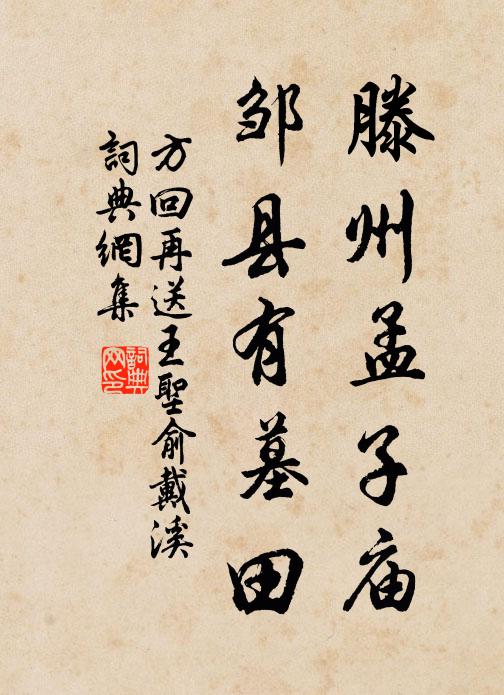 滕州孟子庙
邹县有墓田
方回再送王聖俞戴溪
詞典網集
詞典网印